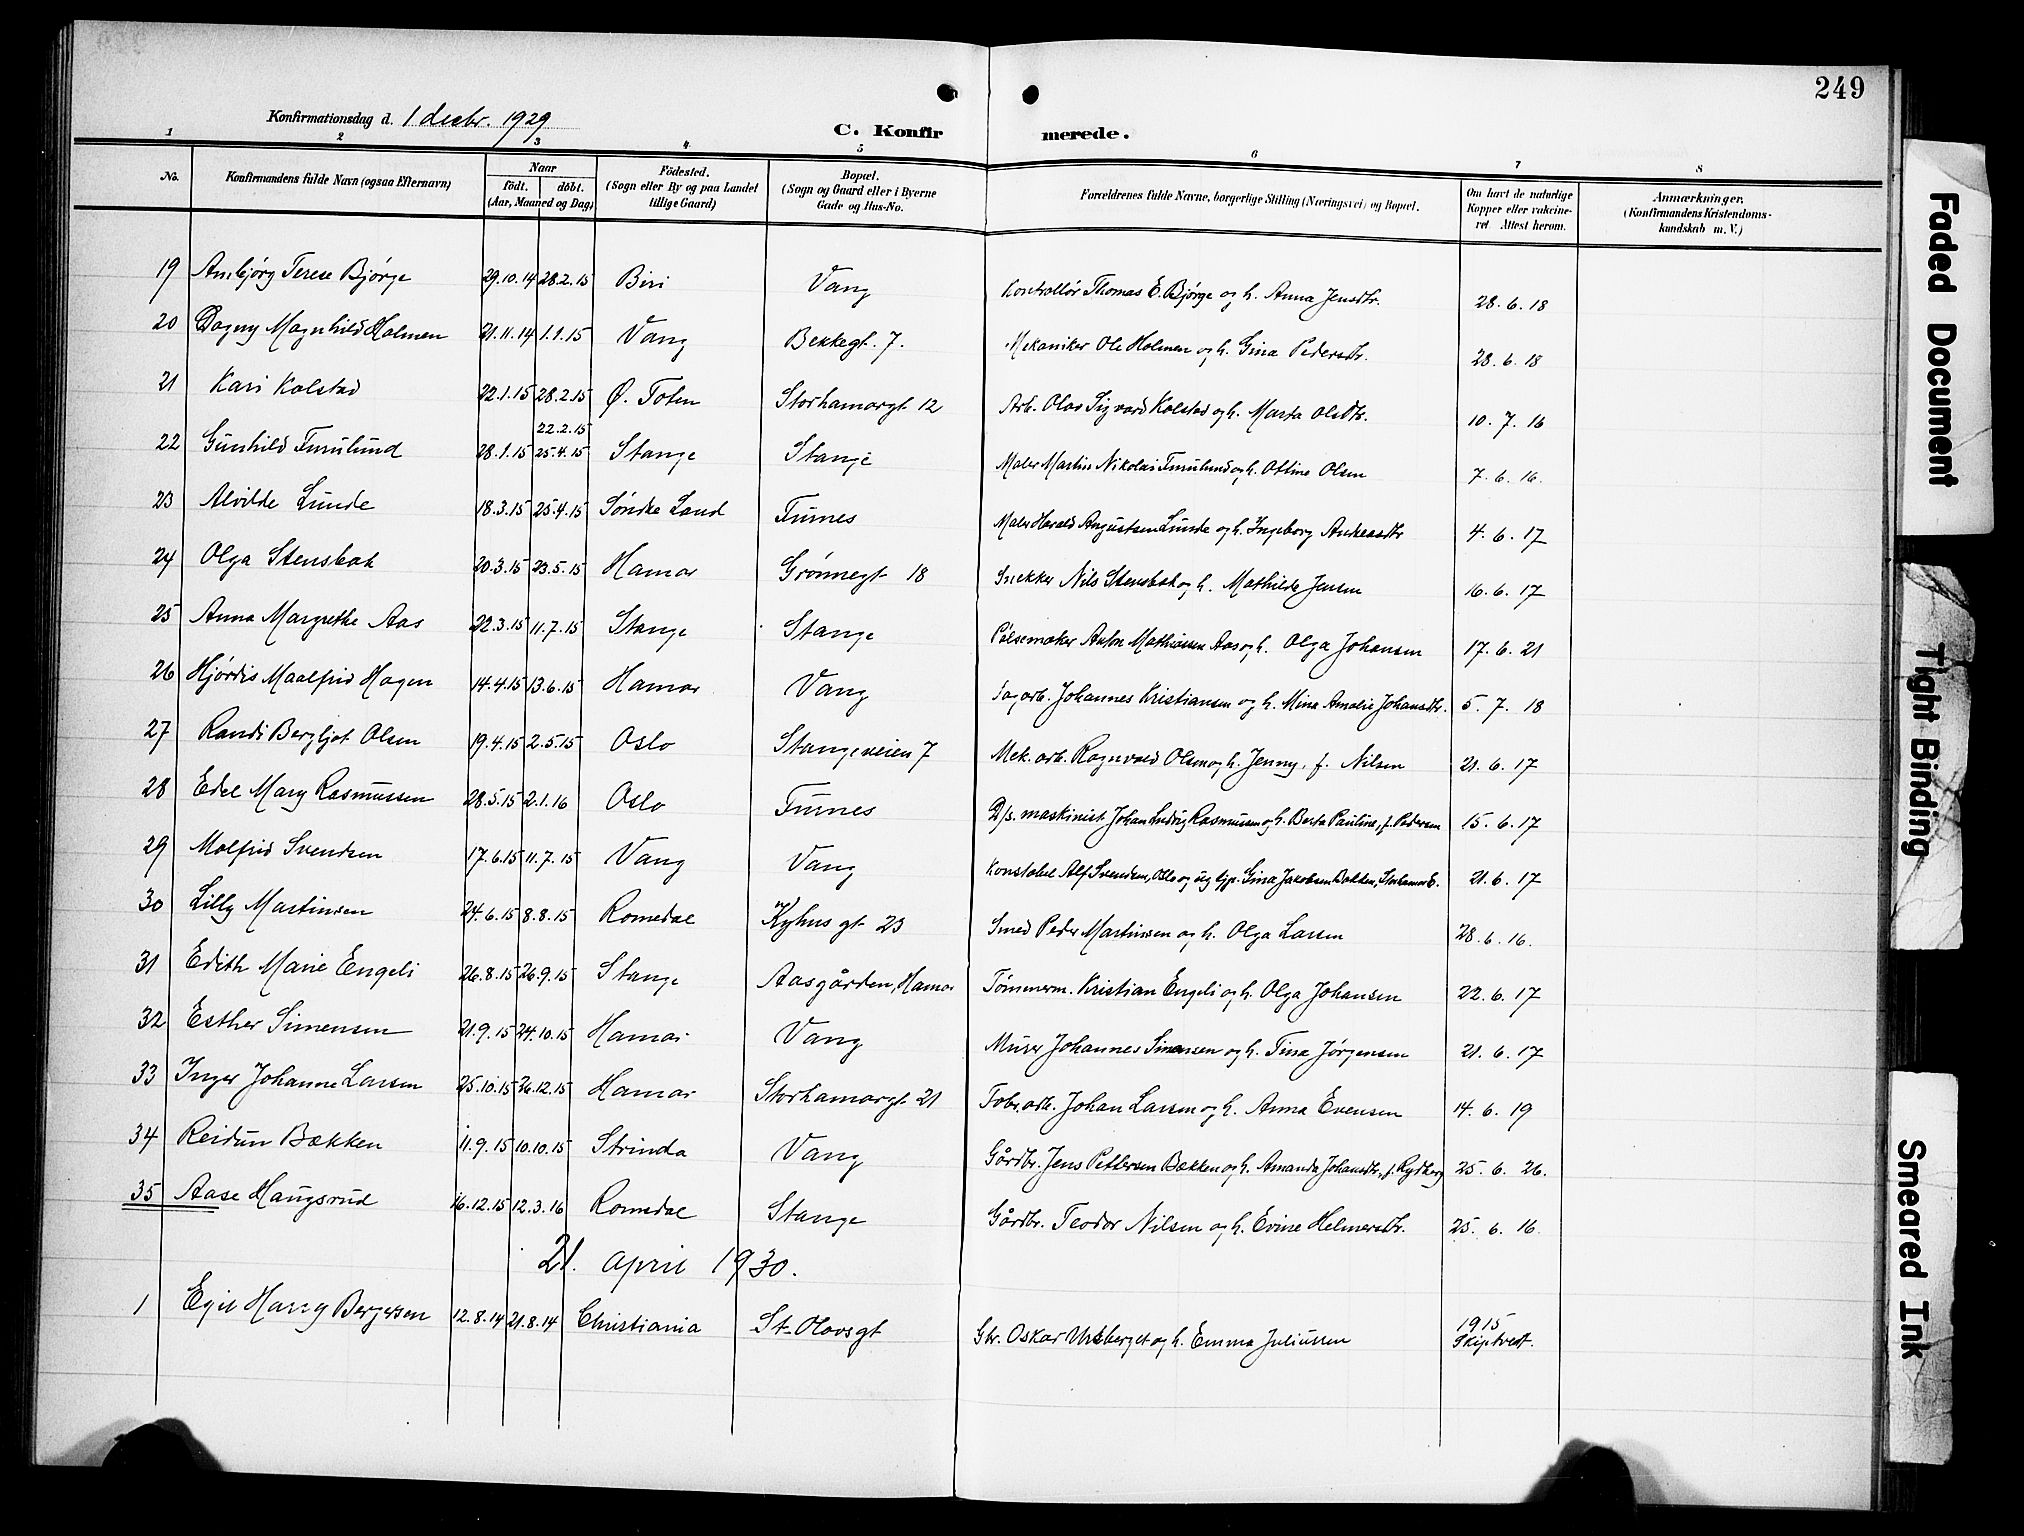 249
Konfirmationsdag d. 1 decbr. 1929
C. Konfirmerede.
1 2 3 4 5 6 7 8
No. Konfirmandens fulde Navn (ogsaa Efternavn) Naar födt. döbt. (Aar, Maaned og Dag) Födested. (Sogn eller By og paa Landet tillige Gaard) Bopæl. (Sogn og Gaard eller i Byerne Gade og Hus-No. Forældrenes fulde Navne, borgerlige Stilling (Næringsvei) og Bopæl. Om havt de naturlige Kopper eller vakcineret. Attest herom. Anmærkninger. (Konfirmandens Kristendomskundskab m. V.)
19 Ambjörg Terese Bjørge 29.10.14 28.2.15 Biri Vang Kontrollör Thomas E. Bjørge og h. Anna Jensdtr. 28.6.18
20 Dagny Magnhild Holmen 21.11.14 1.1.15 Vang Bekkegt. 7. Mekaniker Ole Holmen og h. Gina Pedersdtr. 28.6.18
21 Kari Kolstad 22.1.15 28.2.15 Ø. Toten Storhamargt 12 Arb. Olav Sigvard Kolstad og h. Marta Olsdtr. 10.7.16
22.2.15
22 Gunhild Furulund 28.1.15 25.4.15 Stange Stange Maler Martin Nikolai Furulund og h. Ottine Olsen 7.6.16.
23 Alvilde Lunde 18.3.15 25.4.15 Söndre Land Furnes Maler Harald Augustsen Lunde og h. Ingeborg Andreasdtr 4.6.17
24 Olga Stensbak 20.3.15 23.5.15 Hamar Grönnegt 18 Snekker Nils Stensbak og h. Mathilde Jensen 16.6.17
25 Anna Margrethe Aas 22.3.15 11.7.15 Stange Stange Pölsemaker Anton Mathiassen Aas og h. Olga Johansen 17.6.21
26 Hjördis Maalfrid Hagen 14.4.15 13.6.15 Hamar Vang Sagarb. Johannes Kristiansen og h. Mina Amalie Johansdtr. 5.7.18
27 Randi Bergljot Olsen 19.4.15 2.5.15 Oslo Stangeveien 7 Mek. arb. Ragnvald Olsen og h. Jenny, f. Nilsen 21.6.17
28 Edel Mary Rasmussen 28.5.15 2.1.16 Oslo Furnes D/s. maskinist Johan Ludvig Rasmussen og h. Berta Pauline, f. Pedersen 15.6.17
29 Molfrid Svendsen 17.6.15 11.7.15 Vang Vang Konstabel Alf Svendsen, Oslo og ug. tjp. Gina Jakobsen Bakken, 21.6.17
30 Lilly Martinsen 24.6.15 8.8.15 Romedal Kyhus gt 23 Smed Peder Martinsen og h. Olga Larsen 28.6.16.
31 Edith Marie Engeli 26.8.15 26.9.15 Stange Aasgården, Hamar Tömmerm. Kristian Engeli og h. Olga Johansen 22.6.17
32 Esther Simensen 21.9.15 24.10.15 Hamar Vang Murer Johannes Simensen og h. Tina Jörgensen 21.6.17
33 Inger Johanne Larsen 25.10.15 26.12.15 Hamar Storhamargt 21 Fabr.arb. Johan Larsen og h. Anna Evensen 14.6.19
34 Reidun Bækken 11.9.15 10.10.15 Strinda Vang Gårdbr. Jens Pettersen Bækken og h. Amanda Johansdtr, f. Rydberg 25.6.26.
35 Aase Haugsrud 16.12.15 12.3.16 Romedal Stange Gårdbr. Teodor Nilsen og h. Evine Helmersdtr. 25.6.16.
21. april 1930.
1 Egil Harry Bergersen 12.8.14 21.8.14 Christiania St. Olavsgt Gbr. Oskar og h. Emma Juliussen 1915 Skiptvedt.
Faded Document
Tight Binding
Smeared Ink